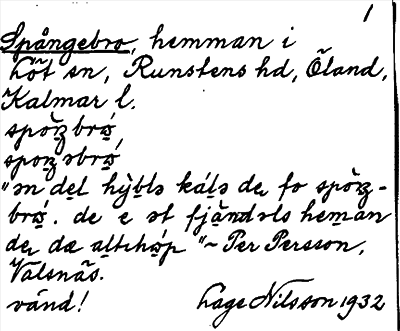 1
Spångebro, hemman i
Löt sn, Runstens hd, Öland,
Kalmar l.
spöʒbrώ̨
spoʒəbrώ̨
"ən del hỳblə kálə de fo spöʒ-
brώ̨. de e ət fjändəls heman
de dæ altihώ̨p" ~ Per Persson,
Valsnäs.
vänd! Lage Nilsson 1932